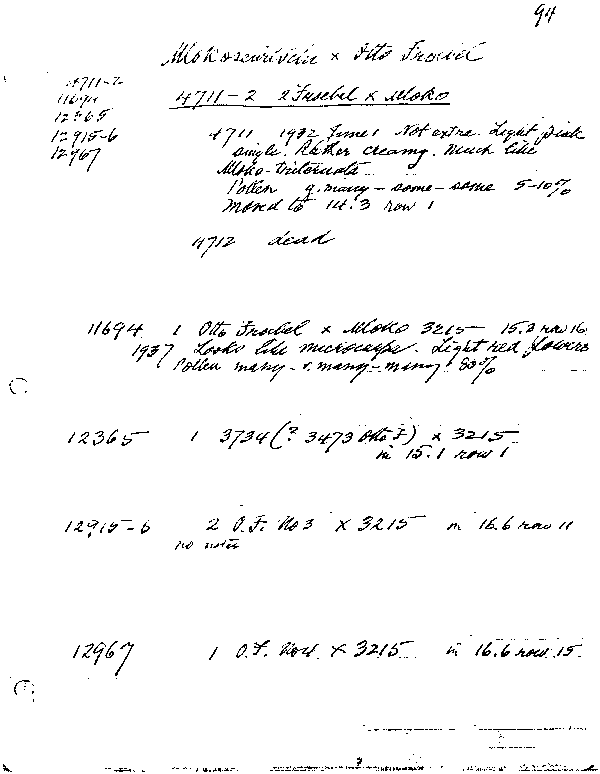 94
Mlokosewitschi x Otto Froebel
4711-2
11694
12365
12915-6
12967
4711-2 2 Froebel x Mloko
4711 1932 June 1 Not extra. Light pink
single. Rather creamy. Much like
Mloko-triternata
Pollen g. many - some - some 5-10%
Moved to 14.3 row 1
4712 dead
11694 1 Otto Froebel x Mloko 3215 15.2 row 16
1937 Looks like microcarpa. Light red flowers
Pollen many - v. many - many 80%
12365 1 3734 (? 3473 Otto F) x 3215
in 15.1 row 1
12915-6 2 O.F. No 3 x 3215 in 16.6 row 11
no notes
12967 1 O.F. x 3215 in 16.6 row 15